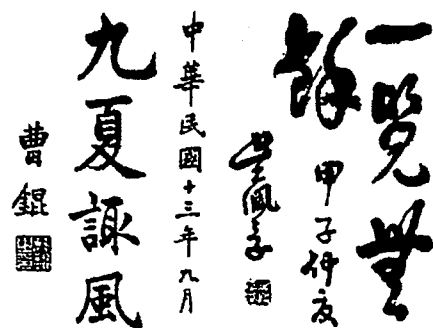 一覽無
餘
甲子仲夏
吳佩孚
中華民國十三年九月
九夏諏風
曹錕